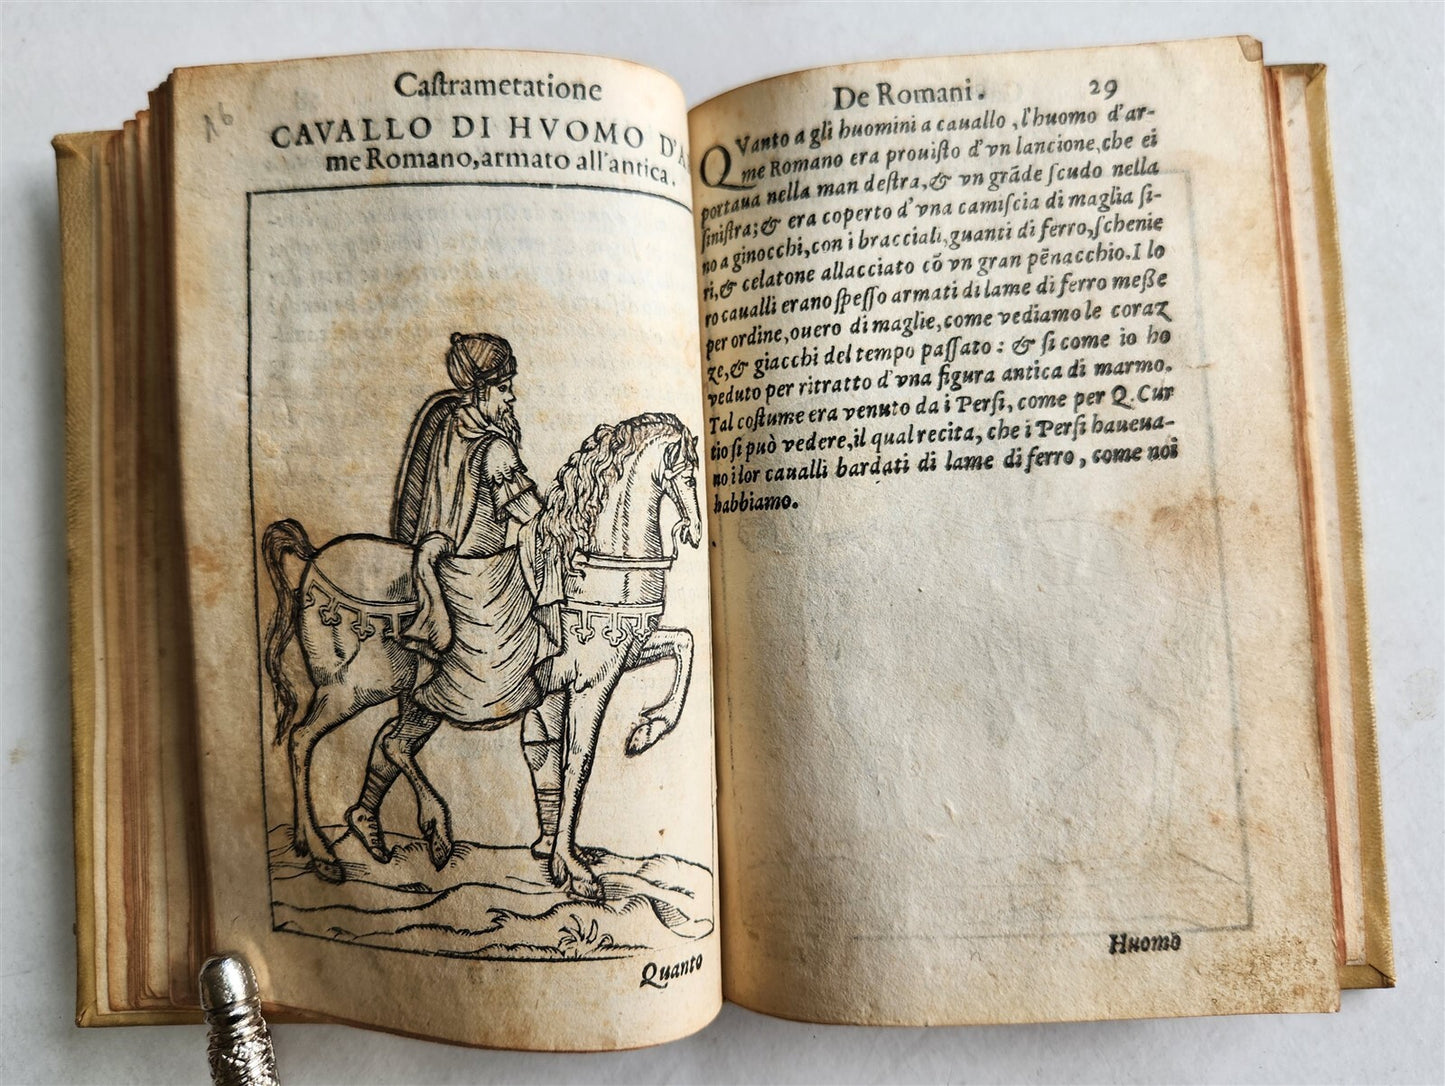 16
Castrametatione
CAVALLO DI HVOMO D'A
me Romano, armato all'antica.
Quanto
De Romani. 29
QVanto a gli huomini a cauallo, l'huomo d'ar-
me Romano era prouisto d'vn lancione, che ei
portaua nella man destra, & vn grāde scudo nella
sinistra; & era coperto d'vna camiscia di maglia si-
no a ginocchi, con i bracciali, guanti di ferro, schenie
ri, & celatone allacciato cō vn gran pēnacchio. I lo
ro caualli erano spesso armati di lame di ferro messe
per ordine, ouero di maglie, come vediamo le coraz
ze, & giacchi del tempo passato: & si come io ho
veduto per ritratto d'vna figura antica di marmo.
Tal costume era venuto da i Persi, come per Q. Cur
tio si può vedere, il qual recita, che i Persi haueua-
no i lor caualli bardati di lame di ferro, come noi
habbiamo.
Huomo